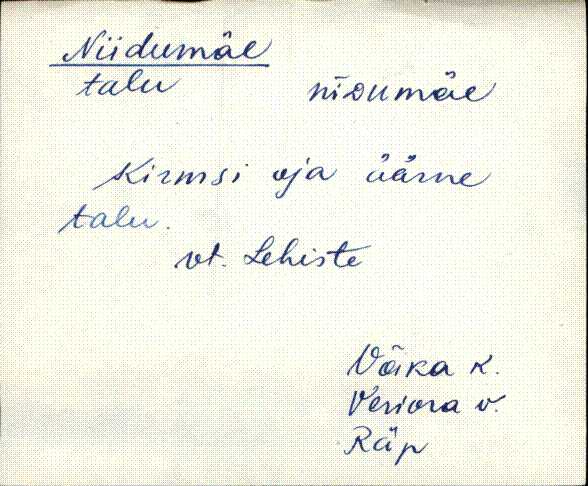 Niidumäe
talu nīᴅumäe
Kirmsi oja äärne
talu.
vt. Lehiste
Võika k.
Veriora v.
Räp